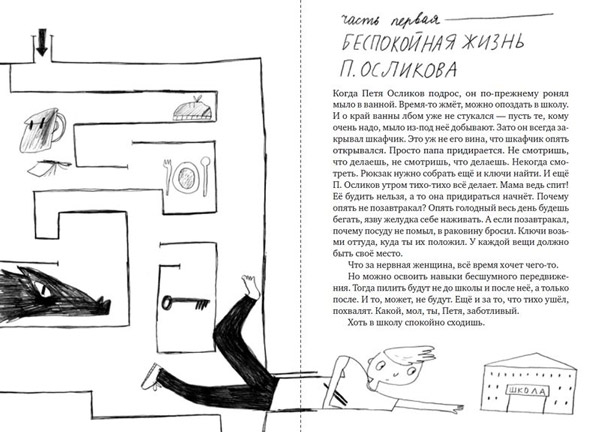 часть первая
БЕСПОКОЙНАЯ ЖИЗНЬ
П. ОСЛИКОВА
Когда Петя Осликов подрос, он по-прежнему ронял
мыло в ванной. Время-то жмёт, можно опоздать в школу.
И о край ванны лбом уже не стукался — пусть те, кому
очень надо, мыло из-под неё добывают. Зато он всегда за-
крывал шкафчик. Это уж не его вина, что шкафчик опять
открывался. Просто папа придирается. Не смотришь,
что делаешь, не смотришь, что делаешь. Некогда смо-
треть. Рюкзак нужно собрать ещё и ключи найти. И ещё
П. Осликов утром тихо-тихо всё делает. Мама ведь спит!
Её будить нельзя, а то она придираться начнёт. Почему
опять не позавтракал? Опять голодный весь день будешь
бегать, язву желудка себе наживать. А если позавтракал,
почему посуду не помыл, в раковину бросил. Ключи возь-
ми оттуда, куда ты их положил. У каждой вещи должно
быть своё место.
Что за нервная женщина, всё время хочет чего-то.
Но можно освоить навыки бесшумного передвиже-
ния. Тогда пилить будут не до школы и после неё, а только
после. И то, может, не будут. Ещё и за то, что тихо ушёл,
похвалят. Какой, мол, ты, Петя, заботливый.
Хоть в школу спокойно сходишь.
ШКОЛА